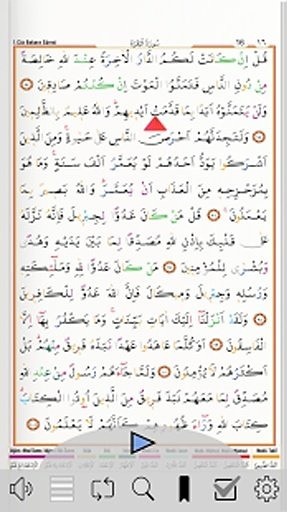 سُورَةُ الْبَقَرَةِ
قُلْ اِنْ كَانَتْ لَكُمُ الدَّارُ الْاٰخِرَةُ عِنْدَ اللّٰهِ خَالِصَةً
مِنْ دُونِ النَّاسِ فَتَمَنَّوُا الْمَوْتَ اِنْ كُنْتُمْ صَادِقٖينَ
وَلَنْ يَتَمَنَّوْهُ اَبَدًا بِمَا قَدَّمَتْ اَيْدٖيهِمْ وَاللّٰهُ عَلٖيمٌ بِالظَّالِمٖينَ
وَلَتَجِدَنَّهُمْ اَحْرَصَ النَّاسِ عَلٰى حَيٰوةٍ وَمِنَ الَّذٖينَ
اَشْرَكُوا يَوَدُّ اَحَدُهُمْ لَوْ يُعَمَّرُ اَلْفَ سَنَةٍ وَمَا هُوَ
بِمُزَحْزِحِهٖ مِنَ الْعَذَابِ اَنْ يُعَمَّرَ وَاللّٰهُ بَصٖيرٌ بِمَا
يَعْمَلُونَ قُلْ مَنْ كَانَ عَدُوًّا لِجِبْرٖيلَ فَاِنَّهُ نَزَّلَهُ
عَلٰى قَلْبِكَ بِاِذْنِ اللّٰهِ مُصَدِّقًا لِمَا بَيْنَ يَدَيْهِ وَهُدًى
وَبُشْرٰى لِلْمُؤْمِنٖينَ مَنْ كَانَ عَدُوًّا لِلّٰهِ وَمَلٰٓئِكَتِهٖ
وَرُسُلِهٖ وَجِبْرٖيلَ وَمٖيكَالَ فَاِنَّ اللّٰهَ عَدُوٌّ لِلْكَافِرٖينَ
وَلَقَدْ اَنْزَلْنَٓا اِلَيْكَ اٰيَاتٍ بَيِّنَاتٍ وَمَا يَكْفُرُ بِهَٓا اِلَّا
الْفَاسِقُونَ اَوَكُلَّمَا عَاهَدُوا عَهْدًا نَبَذَهُ فَرٖيقٌ مِنْهُمْ بَلْ
اَكْثَرُهُمْ لَا يُؤْمِنُونَ وَلَمَّا جَٓاءَهُمْ رَسُولٌ مِنْ عِنْدِ اللّٰهِ
مُصَدِّقٌ لِمَا مَعَهُمْ نَبَذَ فَرٖيقٌ مِنَ الَّذٖينَ اُوتُوا الْكِتَابَ
كِتَابَ اللّٰهِ وَرَٓاءَ ظُهُورِهِمْ كَاَنَّهُمْ لَا يَعْلَمُونَ